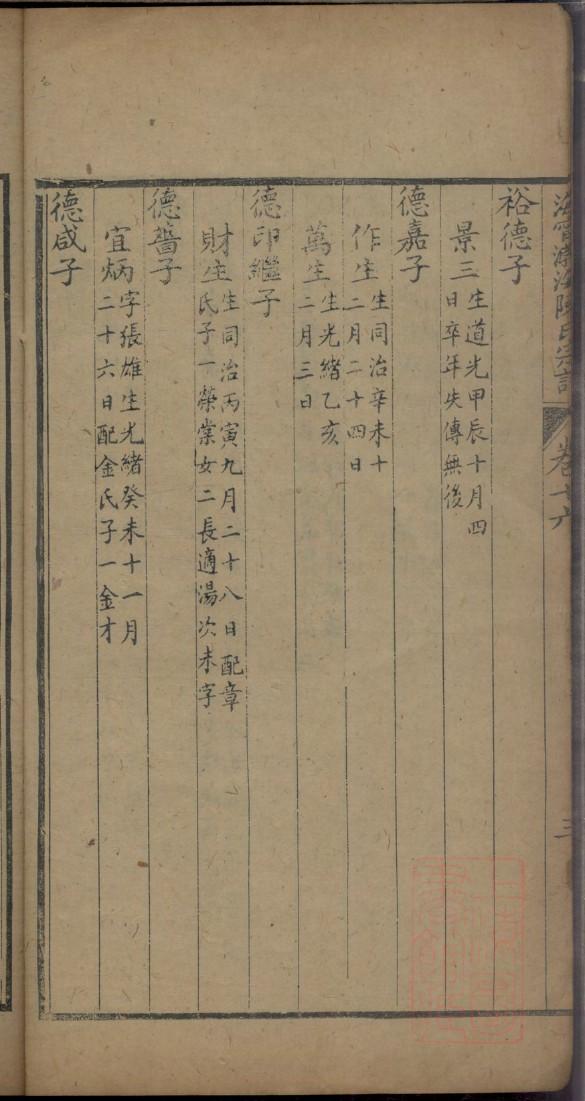 裕德子
景三生道光甲辰十月四
日卒年失傳無後
德嘉子
作生生同治辛未十
二月二十四日
萬生生光緒乙亥
二月三日
德印繼子
財生生同治丙寅九月二十八日配章
氏子一榮棠女二長適湯次未字
德醬子
宜炳字張雄生光緒癸未十一月
二十六日配金氏子一金才
德咸子
陳氏宗譜
卷十六
三